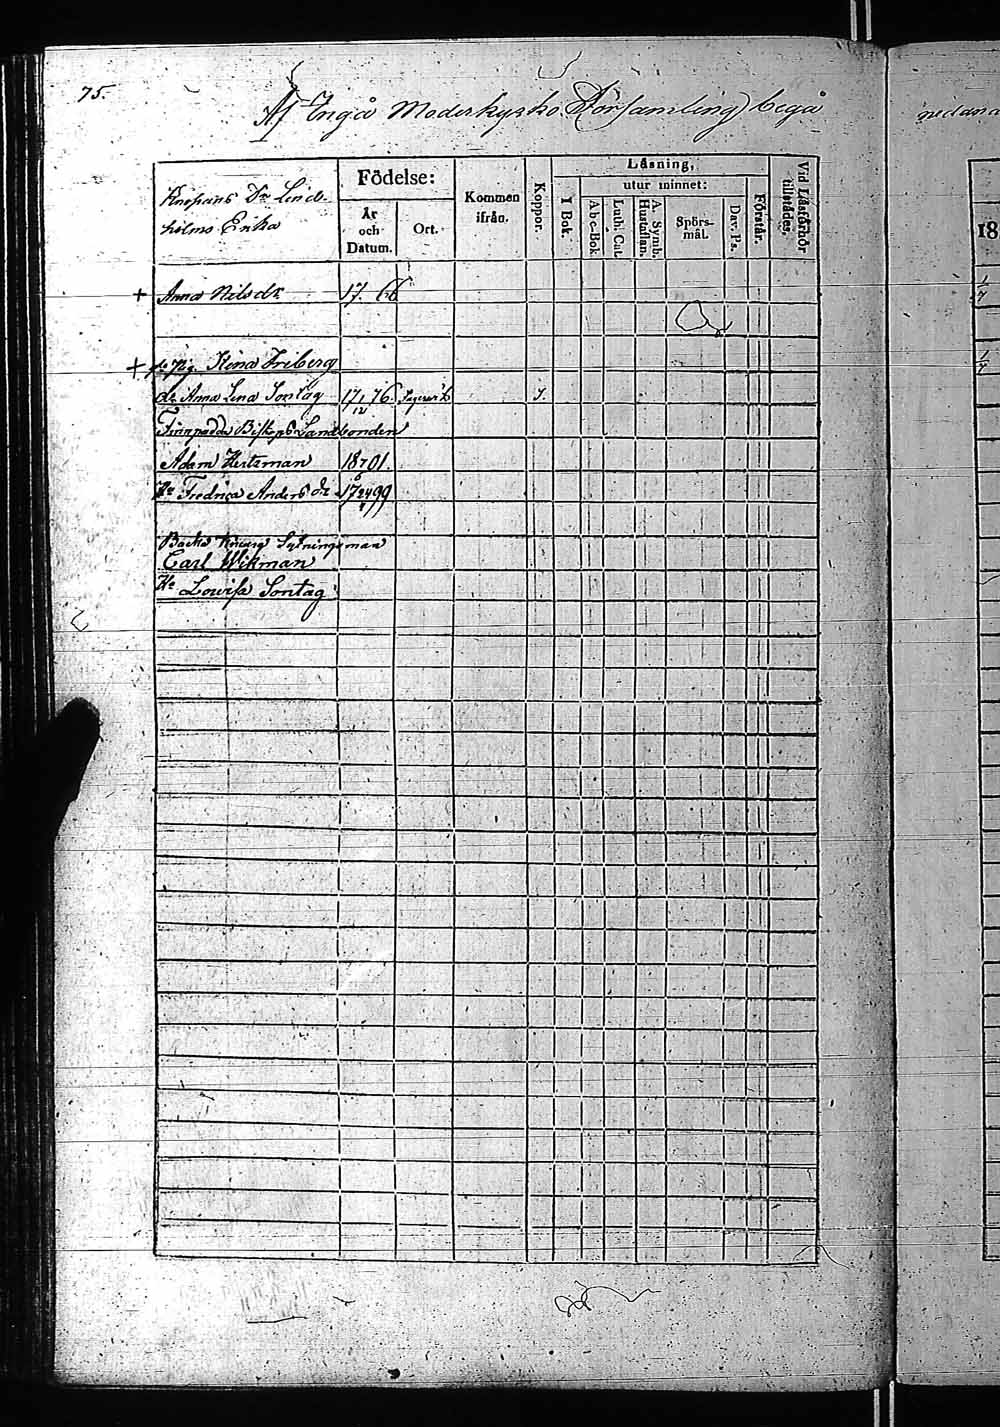 75.
Af Ingå Moderkyrko Församling begå
nedan
Knopans Dr Lind-
holms Enka
Födelse:
År
och
Datum.
Ort.
Kommen
ifrån.
Koppor.
Läsning,
I Bok.
utur minnet:
Abc-Bok
Luth. Cat.
A. Symb.
Hustaflan.
Spörs-
mål.
Dav. Ps.
Förstår.
Vid Läsförhör
tillstädes.
18
+ Anna Nilsdr 17 66
+ Pig. Stina Friberg
dr Anna Lena Sontag 17 76
12
Biskops Landbonden
Adam Hertzman 18 01.
Hu Fredrica Andersdr 17 99
Sytningsman
Carl Wikman
Hu Lovisa Sontag